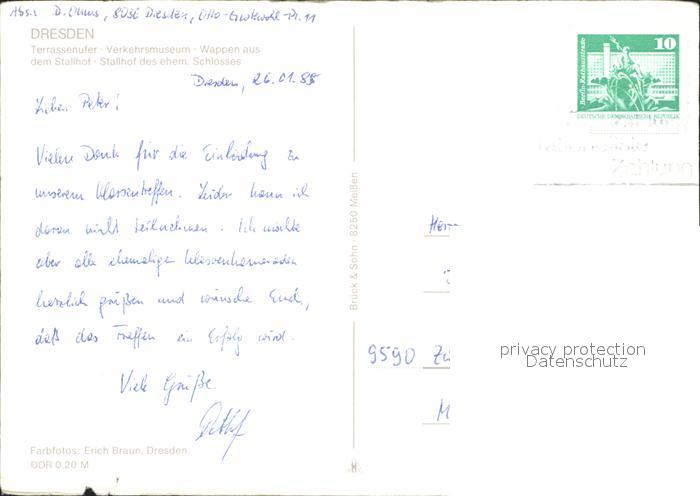 Abs.: D. 8036 Dresden, Otto-Grotewohl-Pl. 11
DRESDEN
Terrassenufer · Verkehrsmuseum · Wappen aus
dem Stallhof · Stallhof des ehem. Schlosses
Dresden, 26.01.88
Lieber Peter!
Vielen Dank für die Einladung zu
unserem Klassentreffen. Leider kann ich
daran nicht teilnehmen. Ich möchte
aber alle ehemaligen Klassenkameraden
herzlich grüßen und wünsche Euch,
daß das Treffen ein Erfolg wird.
Viele Grüße
Detlef
Farbfotos: Erich Braun, Dresden
DDR 0,20 M
Brück & Sohn · 8250 Meißen
Berlin-Rathausstraße
10
DEUTSCHE DEMOKRATISCHE REPUBLIK
rationelle
Zahlung
Herrn
9590 Zw
M
privacy protection
Datenschutz